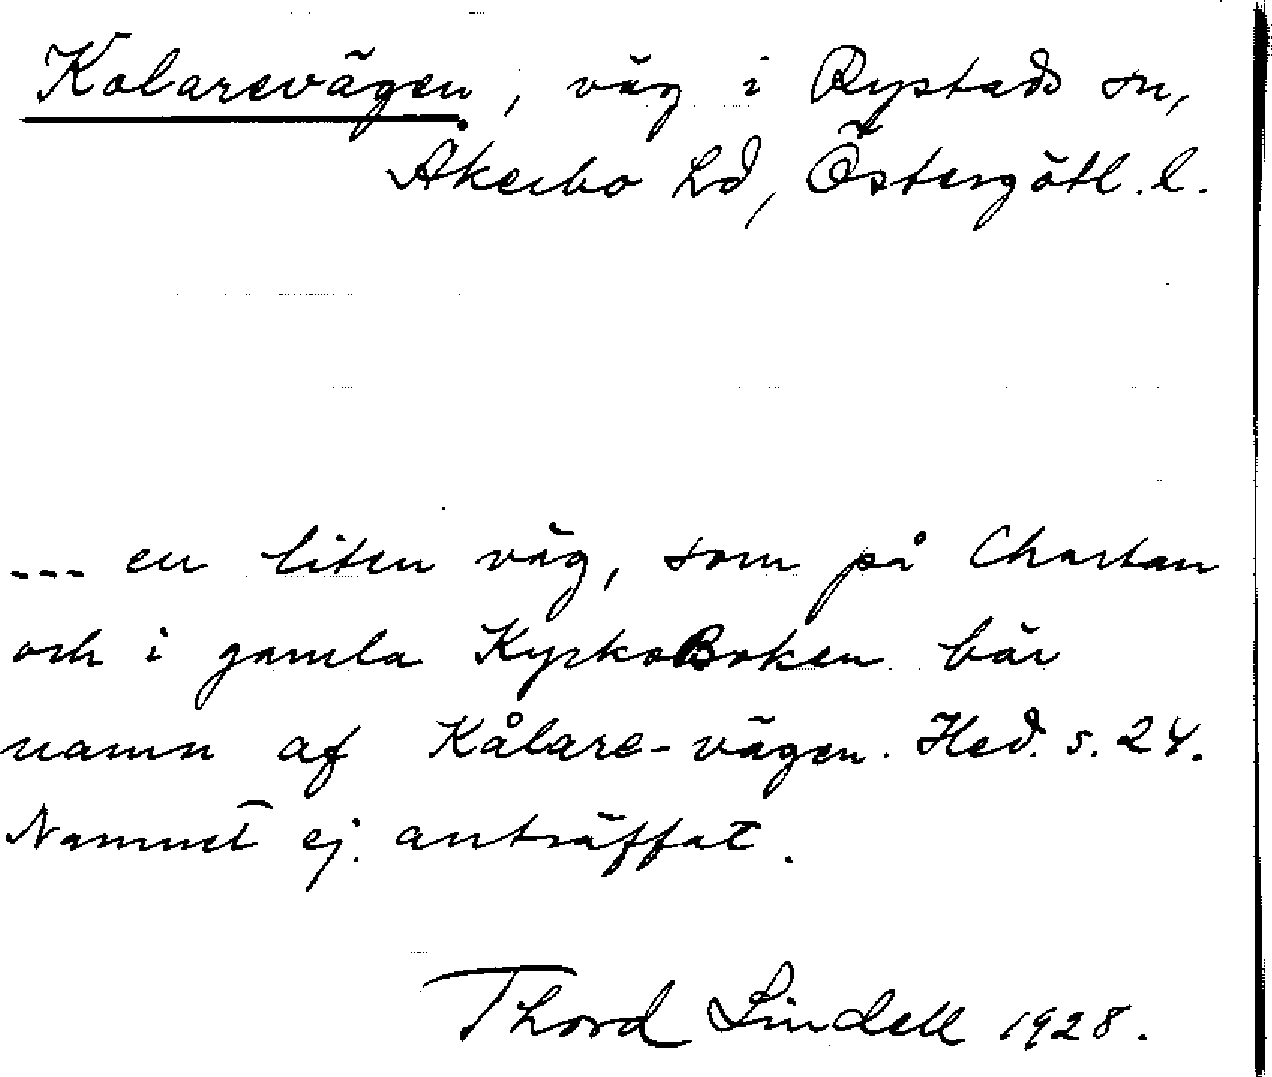 Kolarevägen, väg i Rystads sn,
Åkerbo hd, Östergötl. l.
--- en liten väg, som på Chartan
och i gamla KyrkoBoken bär
namn af Kålare-vägen. Hed. s. 24.
Namnet ej anträffat.
Thord Lindell 1928.